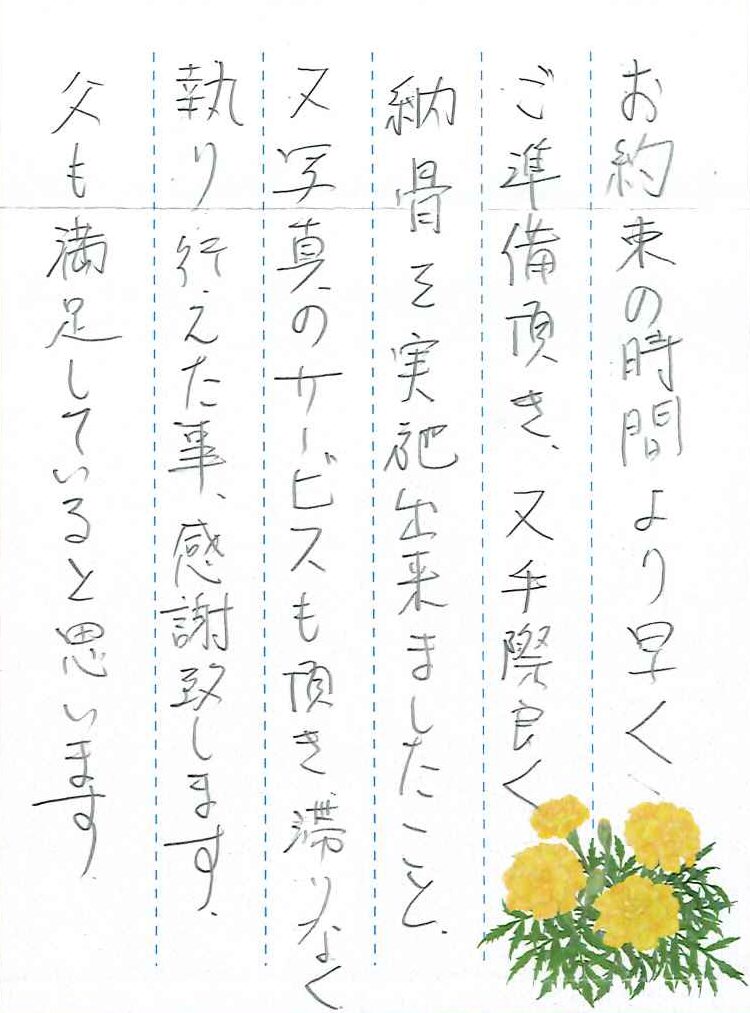 お約束の時間より早く
ご準備頂き、又手際良く
納骨を実施出来ましたこと、
又写真のサービスも頂き滞りなく
執り行えた事、感謝致します。
父も満足していると思います。